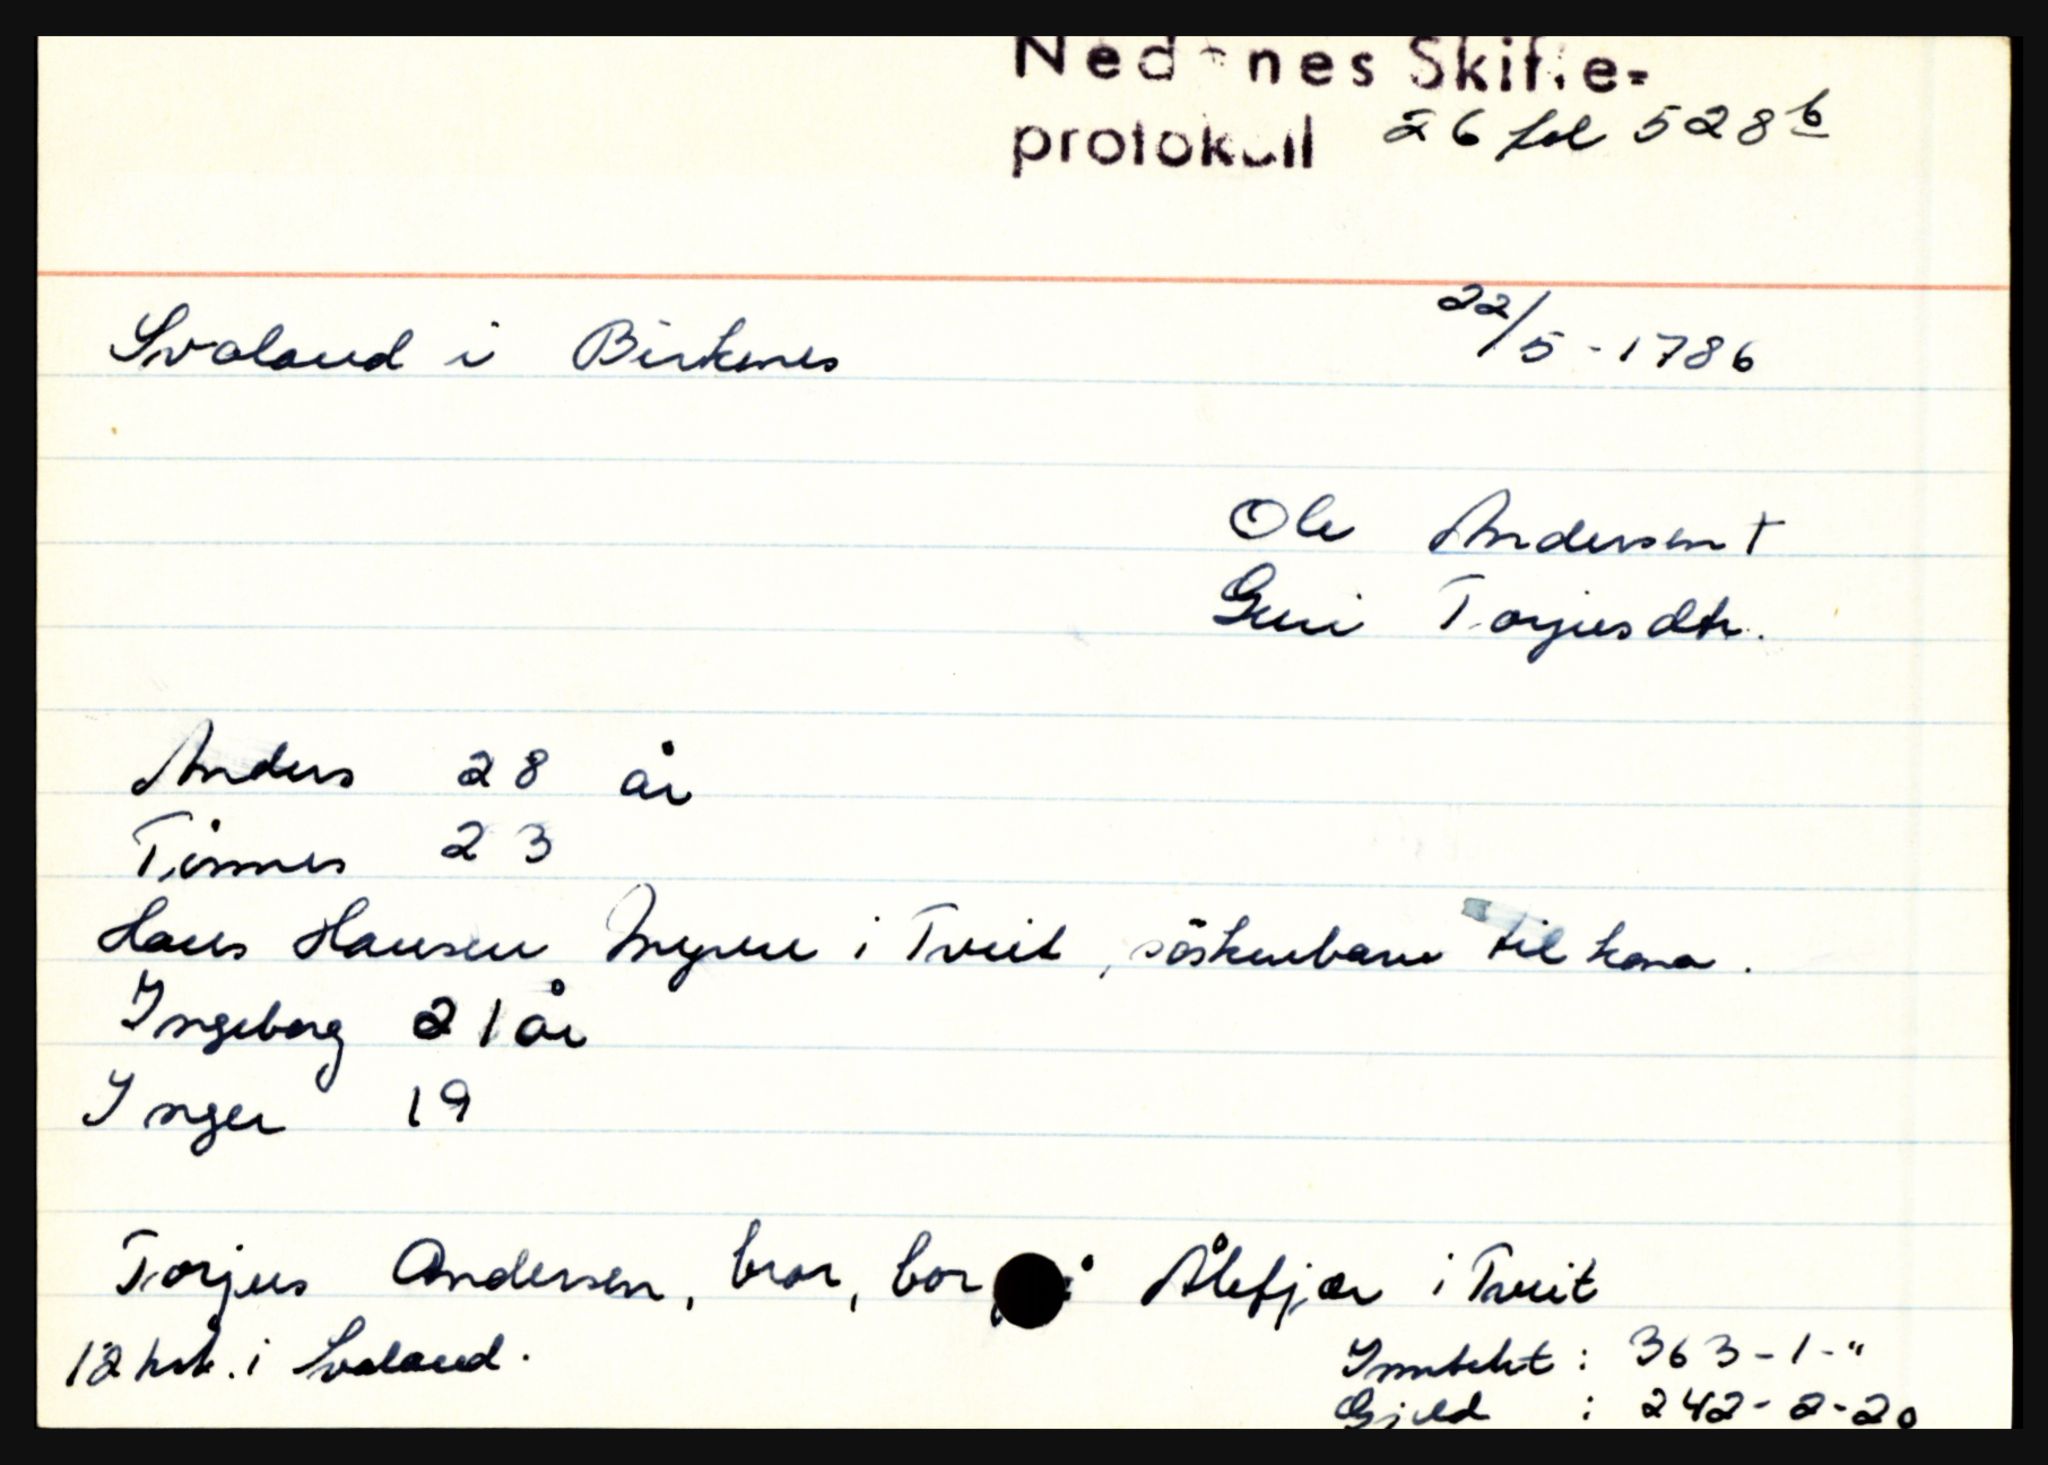 Nedenes Skifte-
protokoll 26 fol 528 b
Svaland i Birkenes 22/5-1786
Ole Andersen †
Guri Torjusdtr.
Anders 28 år
Tinnes 23
Hans Hansen Myren i Tveit, söskenbarn til kona.
Ingeborg 21 år
Inger 19
Torjus Andersen, bror, bor på Ålefjær i Tveit
12 hd. i Svaland.
Inntekt : 363-1-"
Gjeld : 242-2-20